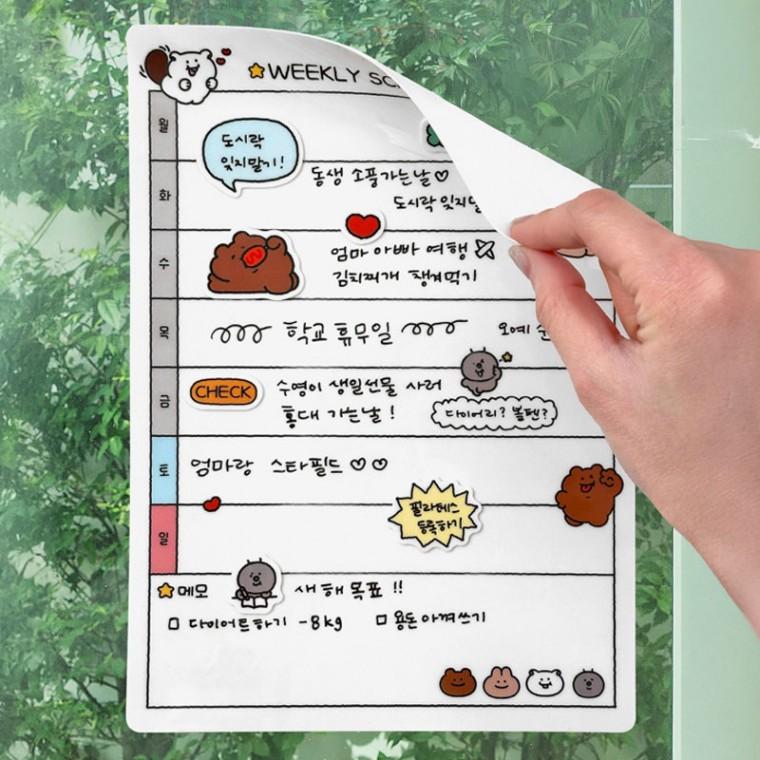 WEEKLY
월
도시락
잊지말기!
화
동생 소풍가는날♡
도시락 잊지
수
엄마 아빠 여행
김치찌개 챙겨먹기
목
학교 휴무일
오예
금
CHECK
수영이 생일선물 사러
홍대 가는날!
다이어리? 볼펜?
토
엄마랑 스타필드 ♡♡
일
필라테스
등록하기
메모
새해 목표 !!
□ 다이어트하기 -8kg □ 용돈 아껴쓰기